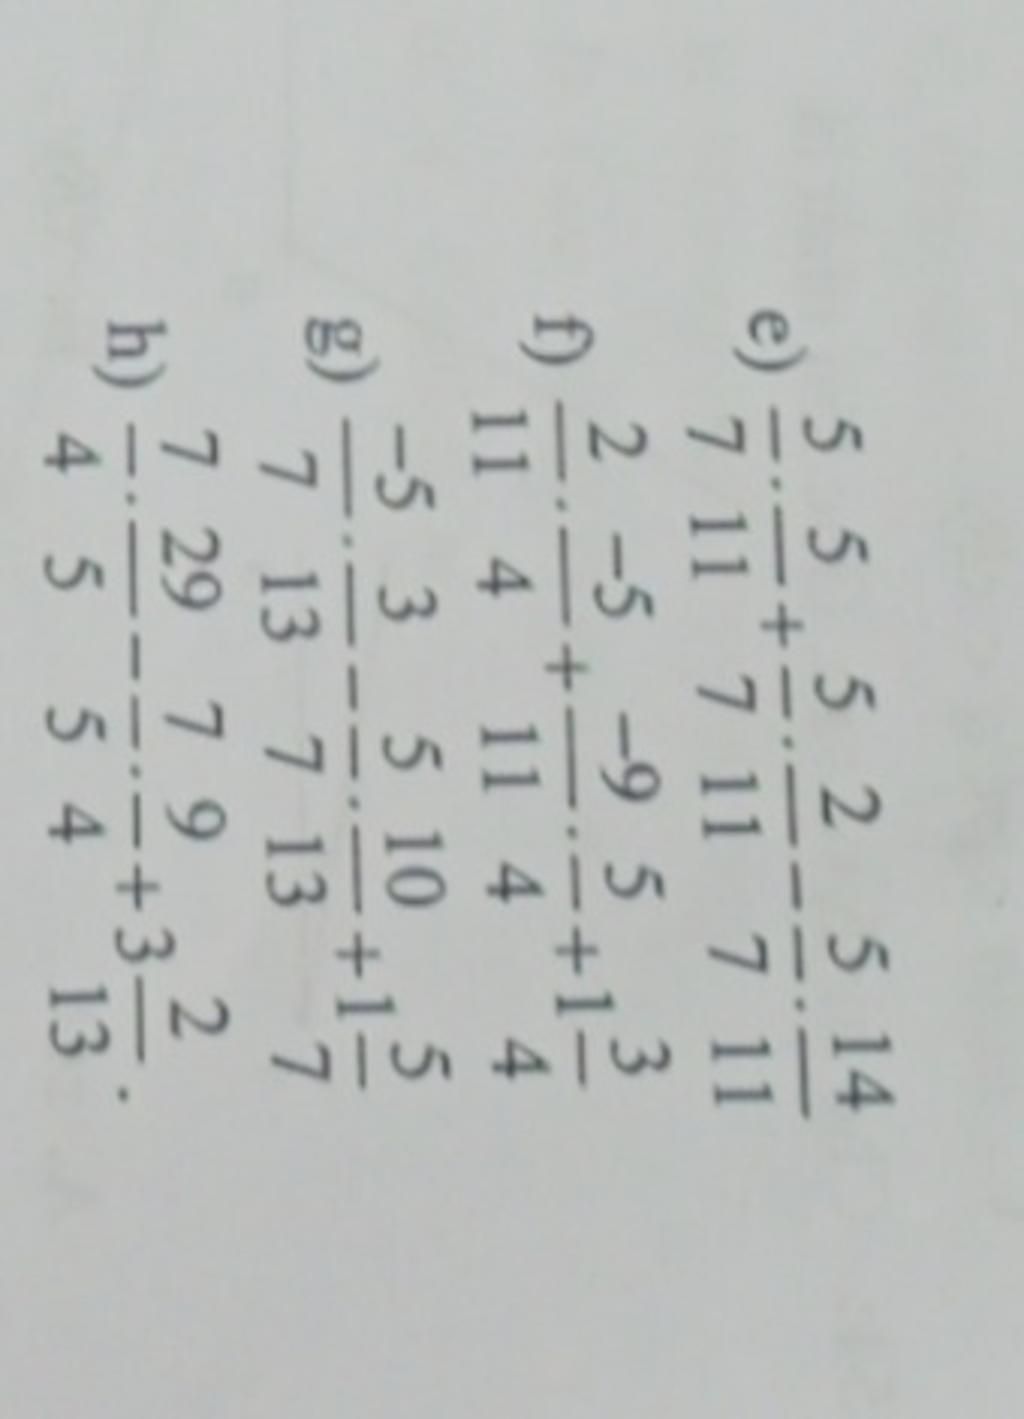 e) 5/7 · 5/11 + 5/7 · 2/11 − 5/7 · 14/11
f) 2/11 · −5/4 + −9/11 · 5/4 + 1 3/4
g) −5/7 · 3/13 − 5/7 · 10/13 + 1 5/7
h) 7/4 · 29/5 − 7/5 · 9/4 + 3 2/13 .